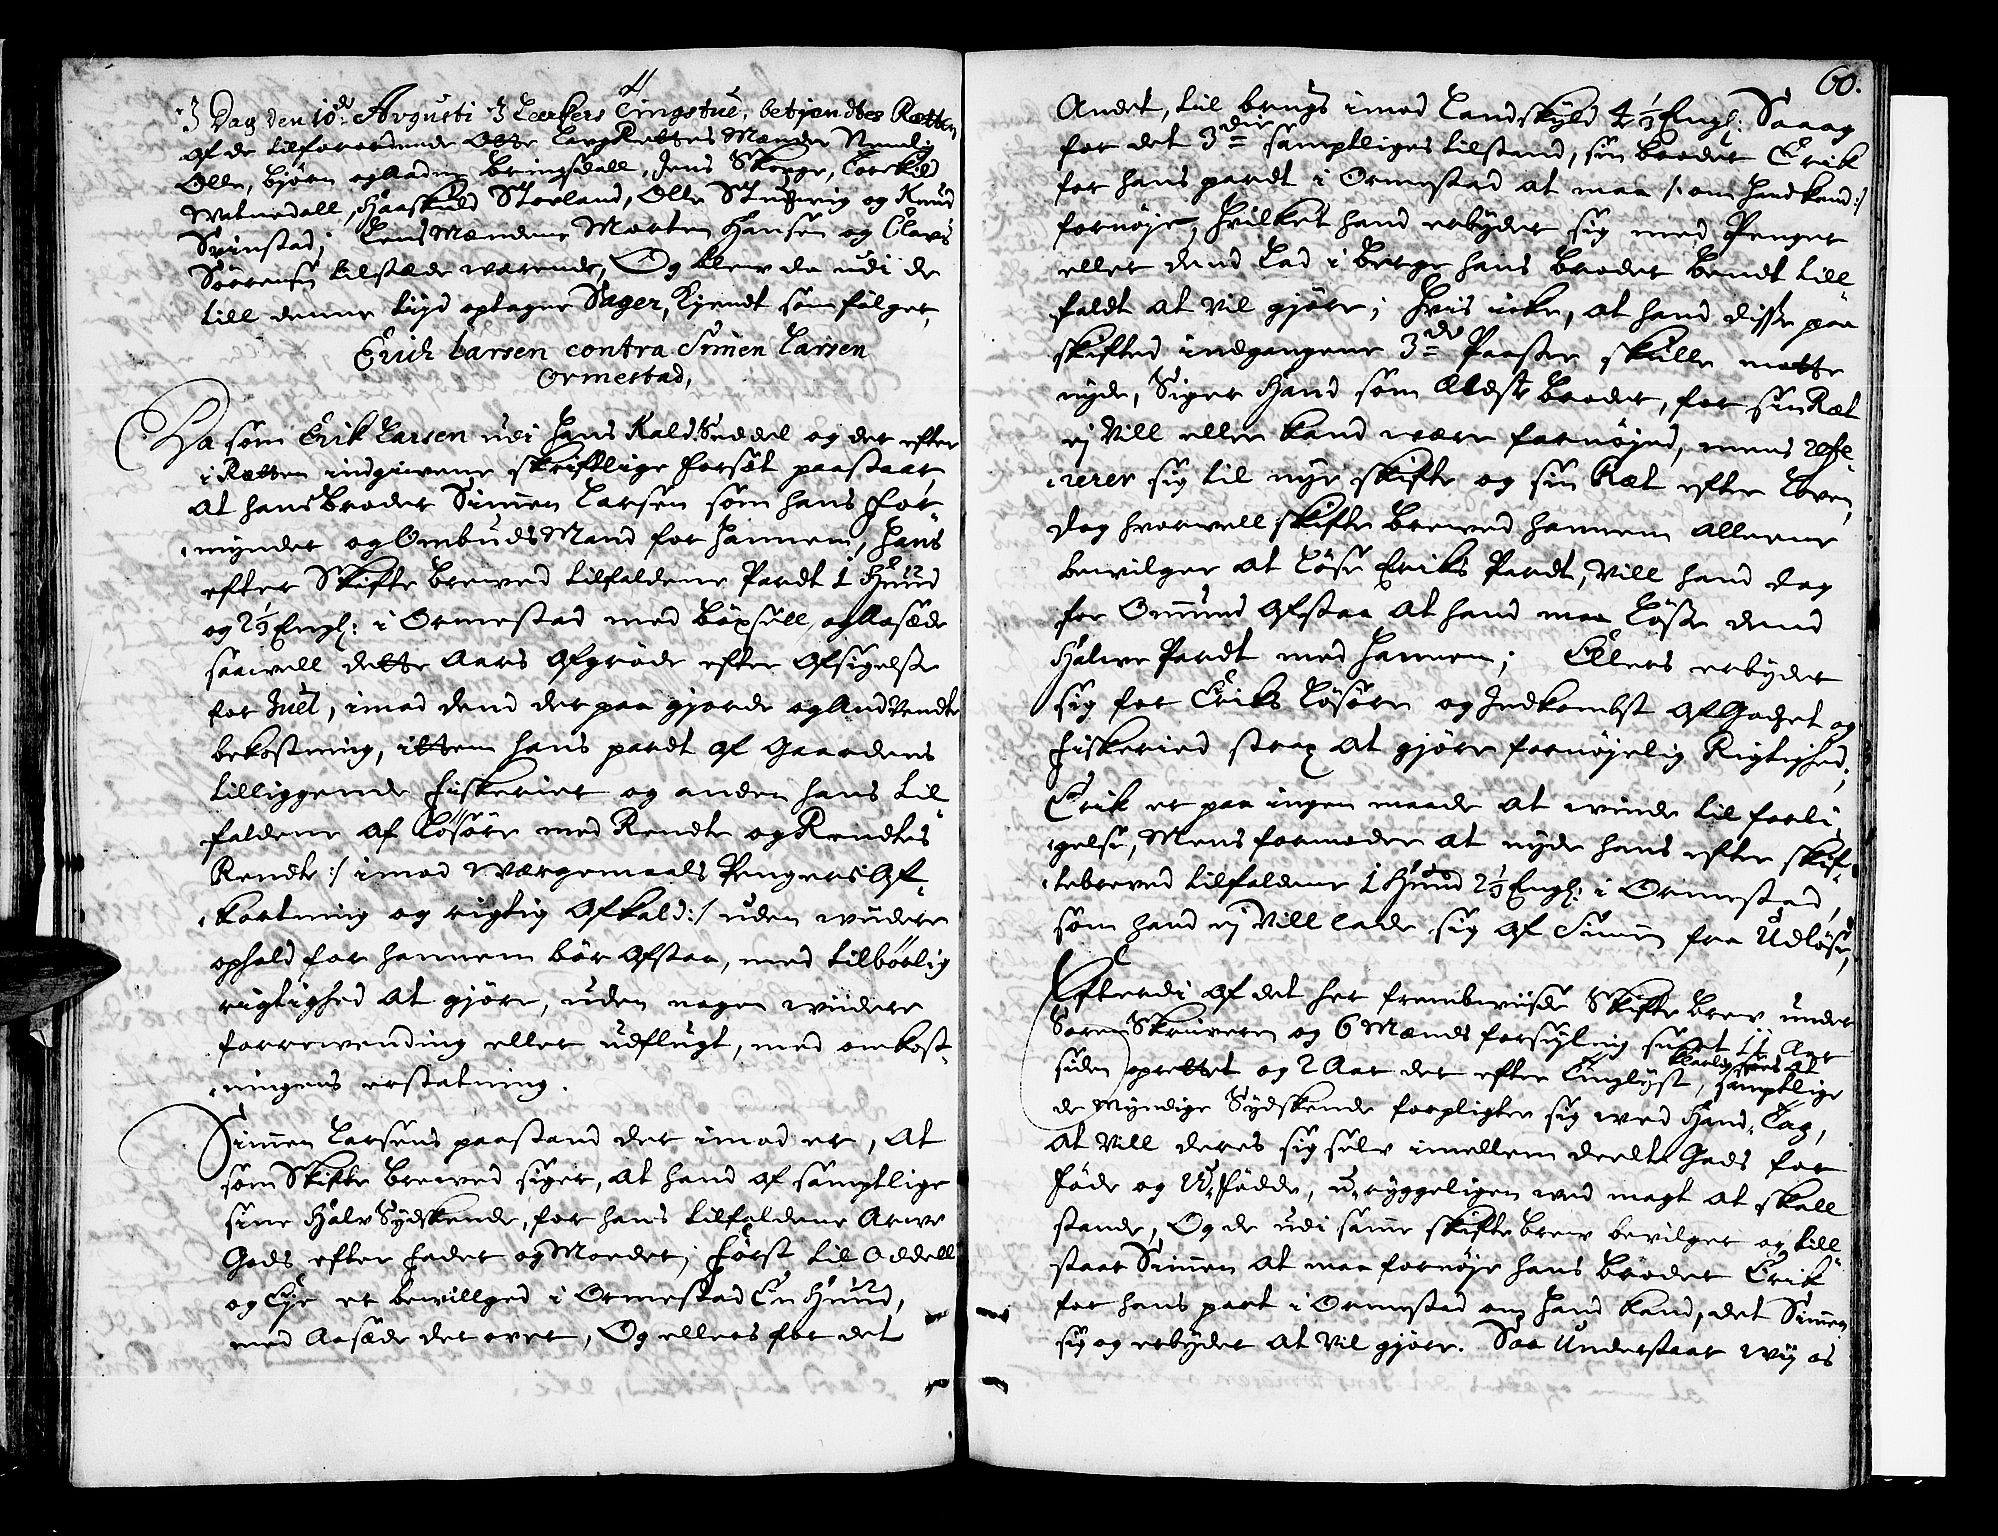 J Dag den 10de Avgusti J Leerkers Tingstue, betiendtes Rætten
af de tilforordnede Otte LaugRettes Mænder Nemlig
Olle, Bjørn og Aadne Bringsdall, Jens Skorge, Torkild
Watnedall, Haaskuld Storland, Olle Stuswig og Knud
Svinstad; LensMændene Morten Hansen og Clavs
Sørensen tilstæde wærende, Og blev da udi de
till denne tiid optagne Sager, Kjendt som følger,
Erich Larsen contra Simen Larsen
Ormestad,
Da som Erik Larsen udi hans Kald Seddel og der efter
i Rætten indgivene skriftlige forsæt paastaar
at hans broder Simen Larsen som hans for-
mynder og Ombuds Mand for hannem, hans
efter Skifte brewed tilfaldene Pardt 1 Huud
og 2 1/3 Engl: i Ormestad med böxsell, og Aasæde
saawell dette aars afgrøde efter afsigelse
for Juel, imod dend der paa gjorde og Andvendte
bekostning, ittem hans pardt af Gaardens
tilliggende fiskerier og anden hans til-
faldene af Løsöre med Rendte og Rendtes
Rendte :/ imod Wærgemaals Pengers Af-
kortning og rigtig afkald :/ uden widere
ophold for hannem bör afstaa, med tilbörlig
rigtighed at gjöre, uden nogen widere
forrewending eller udflugt, med omkost-
ningens erstatning.
Simen Larsens paastand der imod er, at
som Skifte brewed siger, at hand af samptlige
sine Halv Sydskende, for hans tilfaldene Arwe
Gods efter fader og Moeder; først til Oddell
og Eje er bewillged i Ormestad En Huud,
med Aasæde der over, Og ellers for det
60.
Andet, til brugs imod Landskyld 4 1/3 Engl: Saa og
for det 3die samptliges tilstand, sin broder Erik
for hans pardt i Ormestad at maa /: om hand kand :/
fornøje, hvilket hand erbyder sig med Penger
eller dend Lad i Berge hans broder Bendt till
faldt at vil gjøre; hvis icke, at hand disse paa
skifted indgangene 3de Paaster skulle motte
nyde, Siger hand som Ældste broder, for sin Ræt
ej vill eller kand være fornøjed, mens refe-
rerer sig til nye skifte og sin Ræt efter loven,
dog hvorvell skifte brewed hannem alleene
bewilger at løse Eriks Pardt, vill hand dog
for Ommund afstaa at hand maa løsse dend
halwe Pardt med hannem; Ellers erbyder
sig for Eriks løsöre og Indkombst af Godset og
fiskeried strax at gjöre fornøjelig Rigtighed;
Erik er paa ingen maade at winde til forli-
gelse, Mens formoder at nyde hans efter skif-
tebreved tilfaldene 1 Huud 2 1/3 Engl: i Ormestad,
som hand ej vill lade sig af Simen fra Udløse,
Efterdi af det her frembwiisde Skifte brev under
Soren Skriwern og 6 Mænds forsegling siunet 11 Aar
siden oprettet og 2 Aar der efter Tinglyst, klarlig sees at samptlige
de Myndige Sydskende forpligter sig wed Hand-Tag,
at vill deres sig selv imellem deelte Gods for
fødde og U-fødde, u-ryggeligen wed magt at skall
stande, Og de udi samme skifte brev bevilger og till
staar Simen at maa fornøje hans broder Erik
for hans part i Ormestad om hand kand, det Simen
sig og erbyder at vil gjøre. Saa Understaar wii os